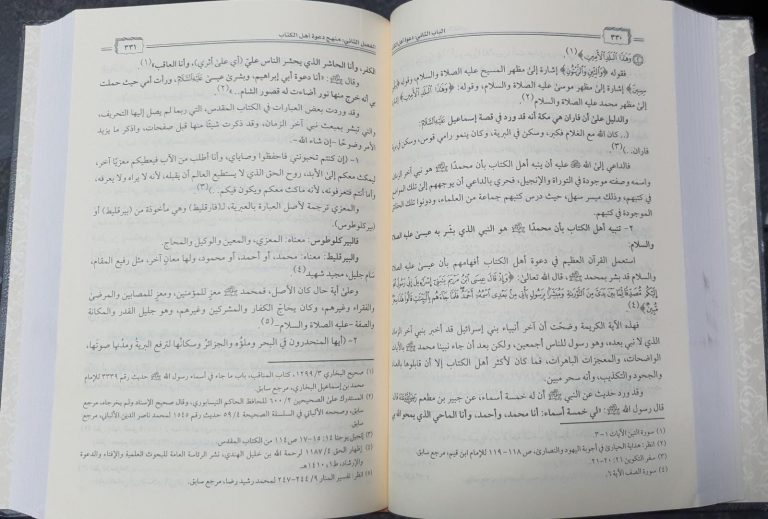 ٣٣٠
الباب الثاني: دعوة أهل الكتاب
﴿وَهَٰذَا الْبَلَدِ الْأَمِينِ﴾ (١).
فقوله ﴿وَالتِّينِ وَالزَّيْتُونِ﴾ إشارة إلى مظهر المسيح عليه الصلاة والسلام، وقوله ﴿وَطُورِ
سِينِينَ﴾ إشارة إلى مظهر موسى عليه الصلاة والسلام، وقوله: ﴿وَهَٰذَا الْبَلَدِ الْأَمِينِ﴾ إشارة
إلى مظهر محمد عليه الصلاة والسلام.(٢)
والدليل على أن فاران هي مكة أنه قد ورد في قصة إسماعيل عَلَيْهِ السَّلَامُ:
(.. كان الله مع الغلام فكبر، وسكن في البرية، وكان ينمو رامي قوس، وسكن في برية
فاران..)(٣).
فالداعي إلى الله عليه أن ينبه أهل الكتاب بأن محمدًا ﷺ هو نبي آخر الزمان،
واسمه وصفته موجودة في التوراة والإنجيل، فحري بالداعي أن يوجههم إلى تلك المواطن
في كتبهم، وذلك ميسر سهل، حيث درس كتبهم جماعة من العلماء، ودونوا تلك الدلائل
الموجودة في كتبهم.
٢- تنبيه أهل الكتاب بأن محمدًا ﷺ هو النبي الذي بشر به عيسى عليه الصلاة
والسلام:
استعمل القرآن العظيم في دعوة أهل الكتاب أفهامهم بأن عيسى عليه الصلاة
والسلام قد بشر بمحمد ﷺ، قال الله تعالى: ﴿وَإِذْ قَالَ عِيسَى ابْنُ مَرْيَمَ يَا بَنِي إِسْرَائِيلَ إِنِّي رَسُولُ اللَّهِ
إِلَيْكُم مُّصَدِّقًا لِّمَا بَيْنَ يَدَيَّ مِنَ التَّوْرَاةِ وَمُبَشِّرًا بِرَسُولٍ يَأْتِي مِن بَعْدِي اسْمُهُ أَحْمَدُ فَلَمَّا جَاءَهُم بِالْبَيِّنَاتِ قَالُوا هَٰذَا سِحْرٌ
مُّبِينٌ﴾(٤).
فهذه الآية الكريمة وضحت أن آخر أنبياء بني إسرائيل قد أخبر بنبي آخر الزمان
الذي لا نبي بعده، وهو رسول للناس أجمعين، ولكن بعد أن جاء نبينا محمد ﷺ بالآيات
الواضحات، والمعجزات الباهرات، فما كان لأكثر أهل الكتاب إلا أن قابلوها بالكفر
والجحود والتكذيب، وأنه سحر مبين.
وقد ورد حديث عن النبي ﷺ أن له خمسة أسماء، عن جبير بن مطعم
قال رسول الله ﷺ: «لي خمسة أسماء: أنا محمد، وأحمد، وأنا الماحي الذي يمحو الله بي
(١) سورة التين الآيات ١-٣.
(٢) انظر: هداية الحيارى في أجوبة اليهود والنصارى، ص ١١٨-١١٩ للإمام ابن قيم، مرجع سابق.
(٣) سفر التكوين ٢١: ٢٠-٢١.
(٤) سورة الصف الآية ٦.
الفصل الثاني: منهج دعوة أهل الكتاب
٣٣١
الكفر، وأنا الحاشر الذي يحشر الناس علي (أي على أثري)، وأنا العاقب»(١).
وقال ﷺ: «أنا دعوة أبي إبراهيم، وبشرى عيسى عَلَيْهِ السَّلَامُ، ورأت أمي حيث حملت
بي أنه خرج منها نور أضاءت له قصور الشام..»(٢).
وقد وردت بعض العبارات في الكتاب المقدس، التي ربما لم يصل إليها التحريف،
والتي تبشر بمبعث نبي آخر الزمان، وقد ذكرت شيئًا منها قبل صفحات، وأذكر ما يزيد
الأمر وضوحًا -إن شاء الله-.
١- (إن كنتم تحبونني فاحفظوا وصاياي، وأنا أطلب من الآب فيعطيكم معزيًا آخر،
ليمكث معكم إلى الأبد، روح الحق الذي لا يستطيع العالم أن يقبله، لأنه لا يراه ولا يعرفه،
وأما أنتم فتعرفونه، لأنه ماكث معكم ويكون فيكم..)(٣)
والمعزي ترجمة لأصل العبارة بالعبرية، لـ(فارقليط) وهي مأخوذة من (بيرقليط) أو
(بيركلوطوس).
فالبيركلوطوس: معناه: المعزي، والمعين والوكيل والمحاج.
والبيرقليط: معناه: محمد، أو أحمد، أو محمود، ولها معانٍ آخر، مثل رفيع المقام،
سَام جليل، مجيد شهيد(٤)
وعلى أية حال كان الأصل، فمحمد ﷺ معز للمؤمنين، ومعزٍ للمصابين والمرضى
والفقراء وغيرهم، وكان يحاجّ الكفار والمشركين وغيرهم، وهو جليل القدر والمكانة
والصفة -عليه الصلاة والسلام-(٥)
٢- (أيها المنحدرون في البحر وملؤه والجزائر وسكانها لترفع البرية ومدنها صوتها،
(١) صحيح البخاري ٣/ ١٢٩٩، كتاب المناقب، باب ما جاء في أسماء رسول الله ﷺ حديث رقم ٣٣٣٩ للإمام
محمد بن إسماعيل البخاري، مرجع سابق.
(٢) المستدرك على الصحيحين ٢/ ٦٠٠ للحافظ الحاكم النيسابوري، وقال صحيح الإسناد ولم يخرجاه، مرجع
سابق، وصححه الألباني في السلسلة الصحيحة ٤/ ٥٩ حديث رقم ١٥٤٥ لمحمد ناصر الدين الألباني، مرجع
سابق.
(٣) إنجيل يوحنا ١٤: ١٥-١٧ ص ١١٤ من الكتاب المقدس.
(٤) إظهار الحق ٤/ ١١٨٧ لرحمة الله بن خليل الهندي، نشر الرئاسة العامة للبحوث العلمية والإفتاء والدعوة
والإرشاد، ط١، ١٤١٠هـ.
(٥) انظر: تفسير المنار ٩/ ٢٤٤-٢٤٧ لمحمد رشيد رضا، مرجع سابق.